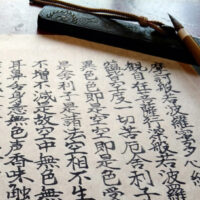 摩訶般若波羅蜜多心経
観自在菩薩行深般若波羅
蘊皆空度一切苦厄舍利子
異色色即是空空即是色受
是舍利子是諸法空相不生
不増不減是故空中無色無
耳鼻舌身意無色声香味触